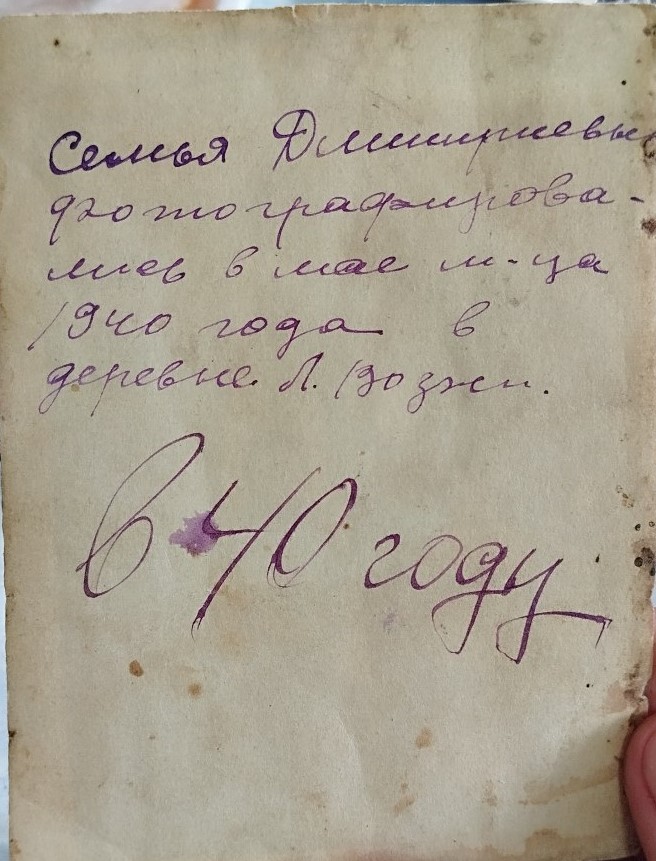 Семья Дмитриевых
фотографирова-
лись в мае м-ца
1940 года в
деревне Л. Возжи.
в 40 году